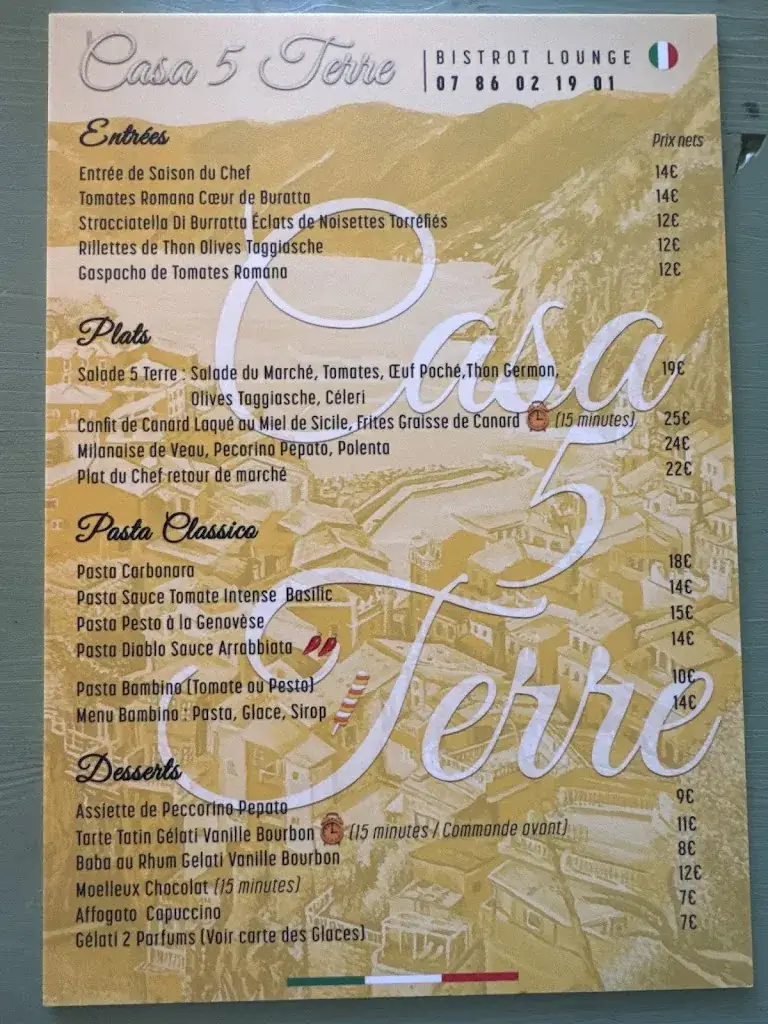 Casa 5 Terre
BISTROT LOUNGE
07 86 02 19 01
Entrées
Prix nets
Entrée de Saison du Chef 14€
Tomates Romana Cœur de Buratta 14€
Stracciatella Di Burratta Éclats de Noisettes Torréfiés 12€
Rillettes de Thon Olives Taggiasche 12€
Gaspacho de Tomates Romana 12€
Plats
Salade 5 Terre : Salade du Marché, Tomates, Œuf Poché,Thon Germon, 19€
Olives Taggiasche, Céleri
Confit de Canard Laqué au Miel de Sicile, Frites Graisse de Canard (15 minutes) 25€
Milanaise de Veau, Pecorino Pepato, Polenta 24€
Plat du Chef retour de marché 22€
Pasta Classico
Pasta Carbonara 18€
Pasta Sauce Tomate Intense Basilic 14€
Pasta Pesto à la Genovèse 15€
Pasta Diablo Sauce Arrabbiata 14€
Pasta Bambino (Tomate ou Pesto) 10€
Menu Bambino : Pasta, Glace, Sirop 14€
Desserts
Assiette de Peccorino Pepato 9€
Tarte Tatin Gélati Vanille Bourbon (15 minutes / Commande avant) 11€
Baba au Rhum Gelati Vanille Bourbon 8€
Moelleux Chocolat (15 minutes) 12€
Affogato Capuccino 7€
Gélati 2 Parfums (Voir carte des Glaces) 7€
Casa
5
Terre